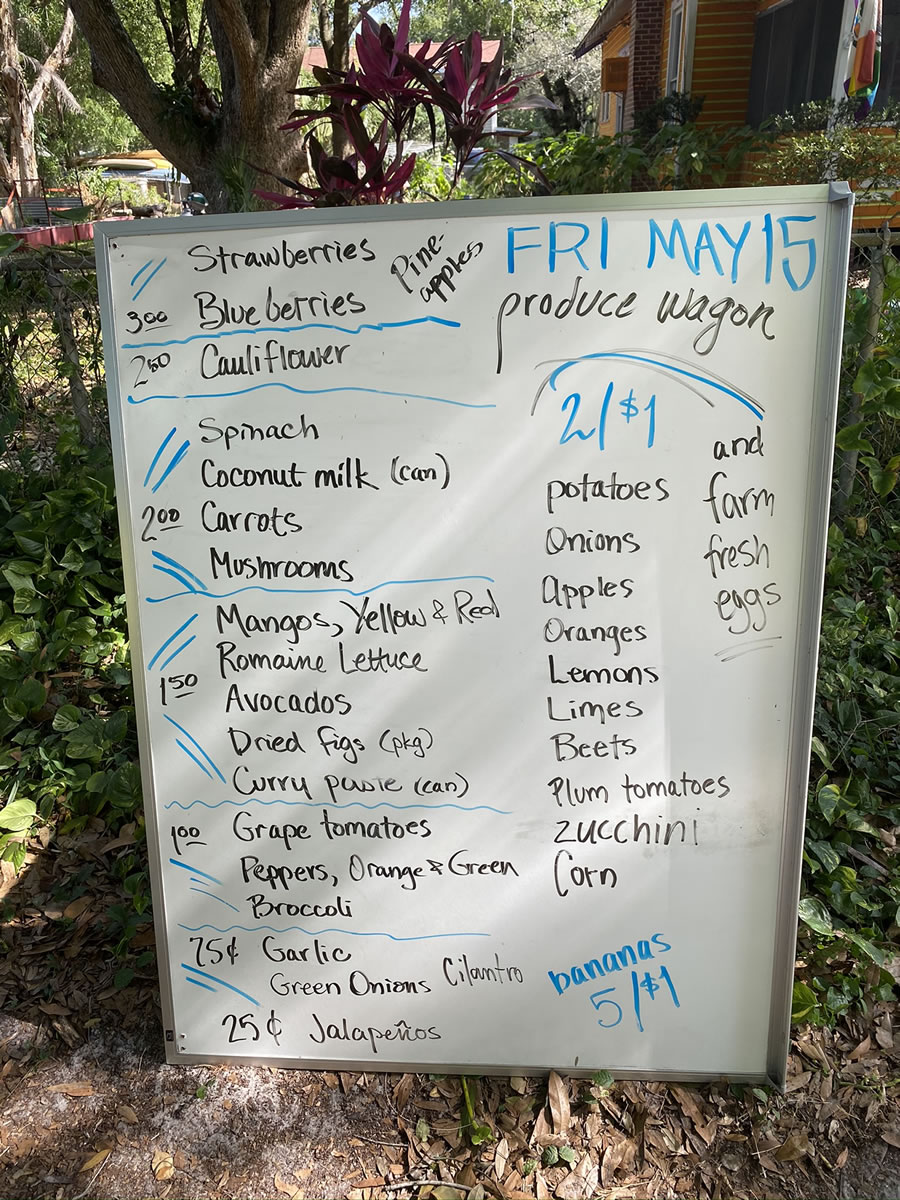 Strawberries
Pine-
apples
3.00 Blueberries
2.50 Cauliflower
Spinach
Coconut milk (can)
2.00 Carrots
Mushrooms
Mangos, Yellow & Red
Romaine Lettuce
1.50
Avocados
Dried figs (pkg)
Curry paste (can)
1.00 Grape tomatoes
Peppers, Orange & Green
Broccoli
75¢ Garlic
Green Onions Cilantro
25¢ Jalapeños
FRI MAY 15
produce wagon
2/$1
potatoes
Onions
Apples
Oranges
Lemons
Limes
Beets
Plum tomatoes
zucchini
Corn
and
farm
fresh
eggs
bananas
5/$1